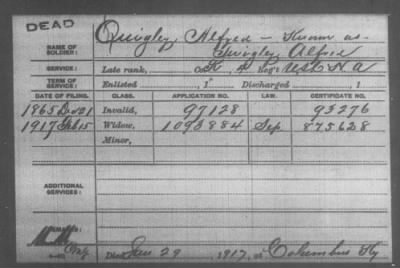 DEAD
NAME OF SOLDIER: Quigley Alfred — Known as
Twigley Alfred
SERVICE: Late rank, Co. K, 4 Reg't U.S.C. H.A
TERM OF SERVICE: Enlisted , 1 Discharged , 1
DATE OF FILING. CLASS. APPLICATION NO. LAW. CERTIFICATE NO.
1865 Dec 21 Invalid, 97128 93276
1917 Feb 15 Widow, 1093884 Sep. 875628
Minor,
ADDITIONAL SERVICES:
Died Jan 29, 1917, at Columbus Ky